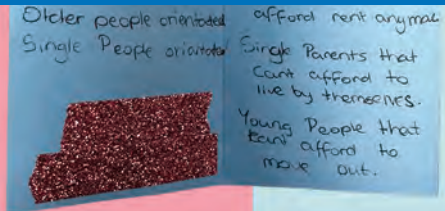 Older people orientated
Single People orientated
afford rent
Single Parents that
Cant afford to
live by themselves.
Young People that
Cant afford to
move out.